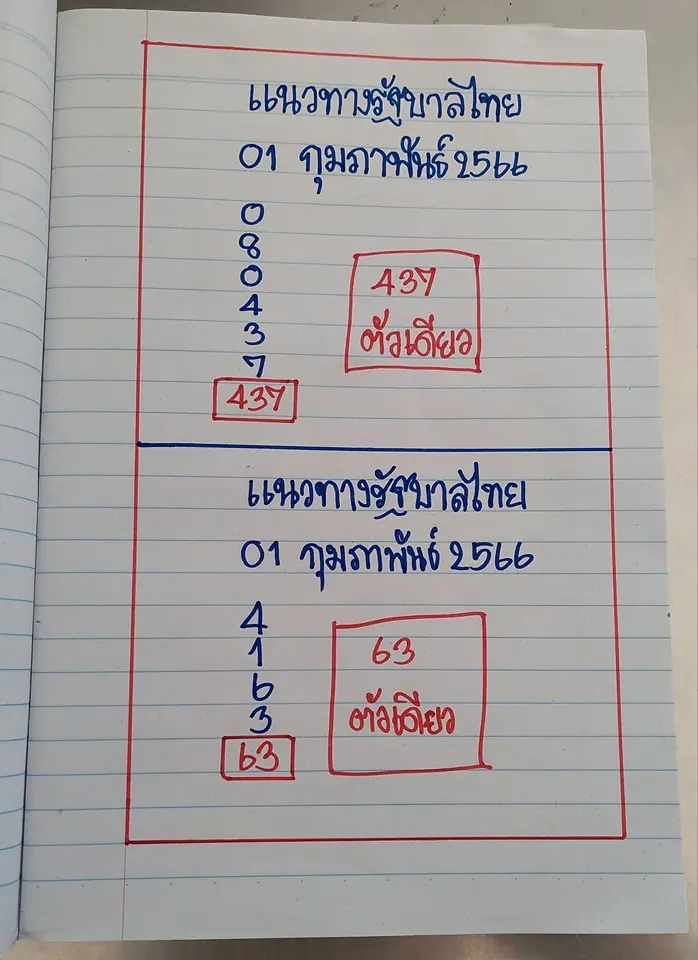 แนวทางรัฐบาลไทย
01 กุมภาพันธ์ 2566
0
8
0
4
3
7
437
437
ตัวเดียว
แนวทางรัฐบาลไทย
01 กุมภาพันธ์ 2566
4
1
6
3
63
63
ตัวเดียว